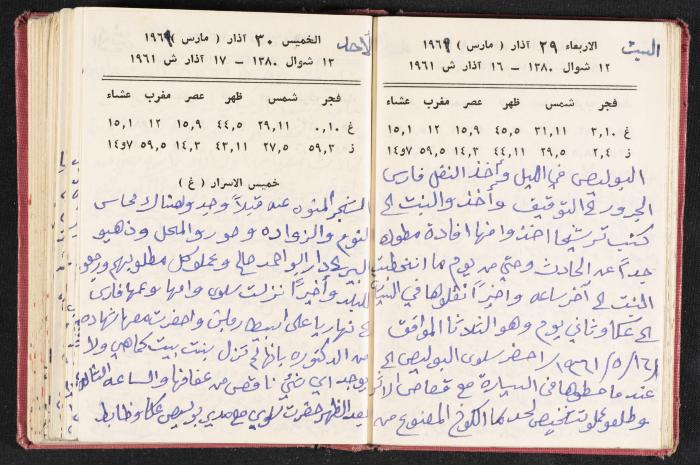 السبت
الاربعاء ٢٩ آذار ( مارس ) ١٩٦٩
١٢ شوال ١٣٨٠ – ١٦ آذار ش ١٩٦١
فجر شمس ظهر عصر مغرب عشاء
غ ٣,١٠ ٣١,١١ ٤٥,٥ ١٥,٩ ١٢ ١٥,١
ز ٢,٤ ٢٩,٥ ٤٤,١١ ١٤,٣ ٥٩,٥ ١٤و٧
البوليص في الليل وأخذ النقل فارس
الجرور في التوقيف وأخذ والبنت الى
كتب ترشيحا اخذ وامنها افادة مطوله
جداً عن الحادث وحتى من يوم ما انخطبت
البنت الى آخر ساعه واخيراً نقلوها في الليل
الى عكا وثاني يوم وهو الثلاثا الموافق
١٩٦١/٥/١٦ احضر سلوى البوليص الى
عند ما حطوها في السيارة مع قصاص الاثر
وطلعو عملو تشخيص لحد ما الكوخ المصنوع من
الاحد
الخميس ٣٠ آذار ( مارس ) ١٩٦٩
١٣ شوال ١٣٨٠ – ١٧ آذار ش ١٩٦١
فجر شمس ظهر عصر مغرب عشاء
غ ٠,١٠ ٢٩,١١ ٤٤,٥ ١٥,٩ ١٢ ١٥,١
ز ٥٩,٣ ٢٧,٥ ٤٣,١١ ١٤,٣ ٥٩,٥ ١٤و٧
خميس الاسرار ( غ )
الشجر المنوه عنه قبلاً وجد وهناك محاس
النوم والزواده وصور والمحل وذهبو
الى دار ابو احمد صالح وعملو كل مطلوبهم ورجعو
للبلد وأخيراً نزلت سلوى وامها وعمها فارس
الى نهاريا على اسبيطر واحضرت معها شهاده
من الدكتوره بانها لم تزل بنت بيت كما هي ولا
يوجد اي شيء ناقص من عفافها والساعه الثالثه
بعد الظهر حضرت سلوى مع مدير بوليص عكا وظابط